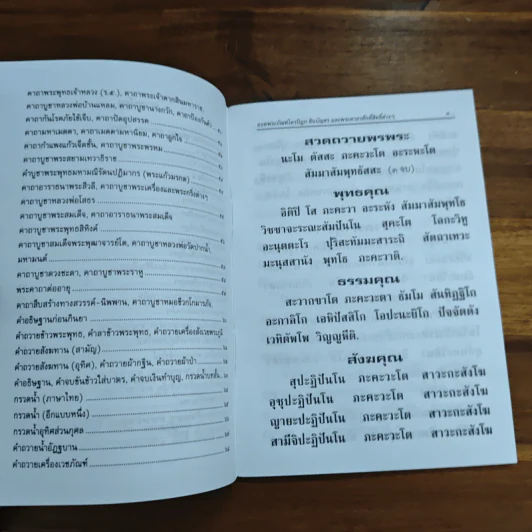 คาถาพระพุทธเจ้าหลวง (ร.๕), คาถาพระเจ้าตากสินมหาราช,
คาถาบูชาหลวงพ่อบ้านแหลม, คาถาบูชานางกวัก, คาถาป้องกันตัว
คาถากันโรคภัยไข้เจ็บ, คาถาปัดอุปสรรค
คาถามหาเมตตา, คาถาเมตตามหานิยม, คาถาผูกใจ
คาถากำแพงแก้วเจ็ดชั้น, คาถาบูชาพระพรหม
คาถาบูชาพระสยามเทวาธิราช
คำบูชาพระพุทธมหามณีรัตนปฏิมากร (พระแก้วมรกต)
คาถาอาราธนาพระสีวลี, คาถาบูชาพระเครื่องและพระกริ่งต่างๆ
คาถาบูชาหลวงพ่อโสธร
คาถาบูชาพระสมเด็จ, คาถาอาราธนาพระสมเด็จ
คาถาบูชาพระพุทธสิหิงค์
คาถาบูชาสมเด็จพระพุฒาจารย์โต, คาถาบูชาหลวงพ่อวัดปากน้ำ
มหามนต์
คาถาบูชาดวงชะตา, คาถาบูชาพระราหู
พระคาถาต่ออายุ
คาถาสืบสร้างทางสวรรค์-นิพพาน, คาถาบูชาหมอชีวกโกมารภัจ
คำอธิษฐานก่อนกินยา
คำถวายข้าวพระพุทธ, คำลาข้าวพระพุทธ, คำถวายเครื่องสังเวยพระภูมิ
คำถวายสังฆทาน (สามัญ)
คำถวายสังฆทาน (อุทิศ), คำถวายผ้ากฐิน, คำถวายผ้าป่า
คำอธิษฐาน, คำจบขันข้าวใส่บาตร, คำจบเงินทำบุญ, กรวดน้ำ
กรวดน้ำ (ภาษาไทย)
กรวดน้ำ (อีกแบบหนึ่ง)
กรวดน้ำอุทิศส่วนกุศล
คำถวายน้ำอัฏฐบาน
คำถวายเครื่องเวชภัณฑ์
สวดถวายพรพระ
นะโม ตัสสะ ภะคะวะโต อะระหะโต
สัมมาสัมพุทธัสสะ (๓ จบ)
พุทธคุณ
อิติปิ โส ภะคะวา อะระหัง สัมมาสัมพุทโธ
วิชชาจะระณะสัมปันโน สุคะโต โลกะวิทู
อะนุตตะโร ปุริสะทัมมะสาระถิ สัตถาเทวะ
มะนุสสานัง พุทโธ ภะคะวาติ.
ธรรมคุณ
สะวากขาโต ภะคะวะตา ธัมโม สันทิฏฐิโก
อะกาลิโก เอหิปัสสิโก โอปะนะยิโก ปัจจัตตัง
เวทิตัพโพ วิญญูหีติ.
สังฆคุณ
สุปะฏิปันโน ภะคะวะโต สาวะกะสังโฆ
อุชุปะฏิปันโน ภะคะวะโต สาวะกะสังโฆ
ญายะปะฏิปันโน ภะคะวะโต สาวะกะสังโฆ
สามีจิปะฏิปันโน ภะคะวะโต สาวะกะสังโฆ